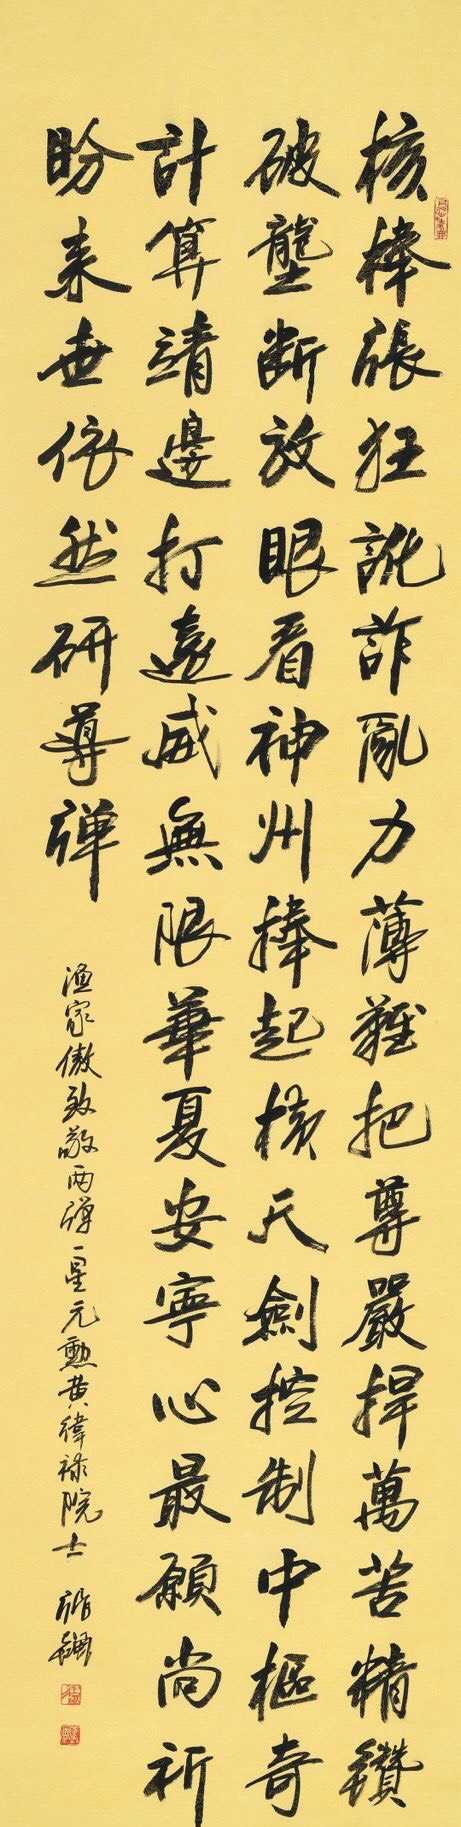 核棒張狂訛詐亂力薄難把尊嚴捍萬苦精鑽
破壟斷放眼看神州捧起核天劍控制中樞奇
計算靖邊打遠威無限華夏安寧心最願尚祈
盼来世依然研導彈
漁家傲致敬两彈一星元勳黄緯祿院士